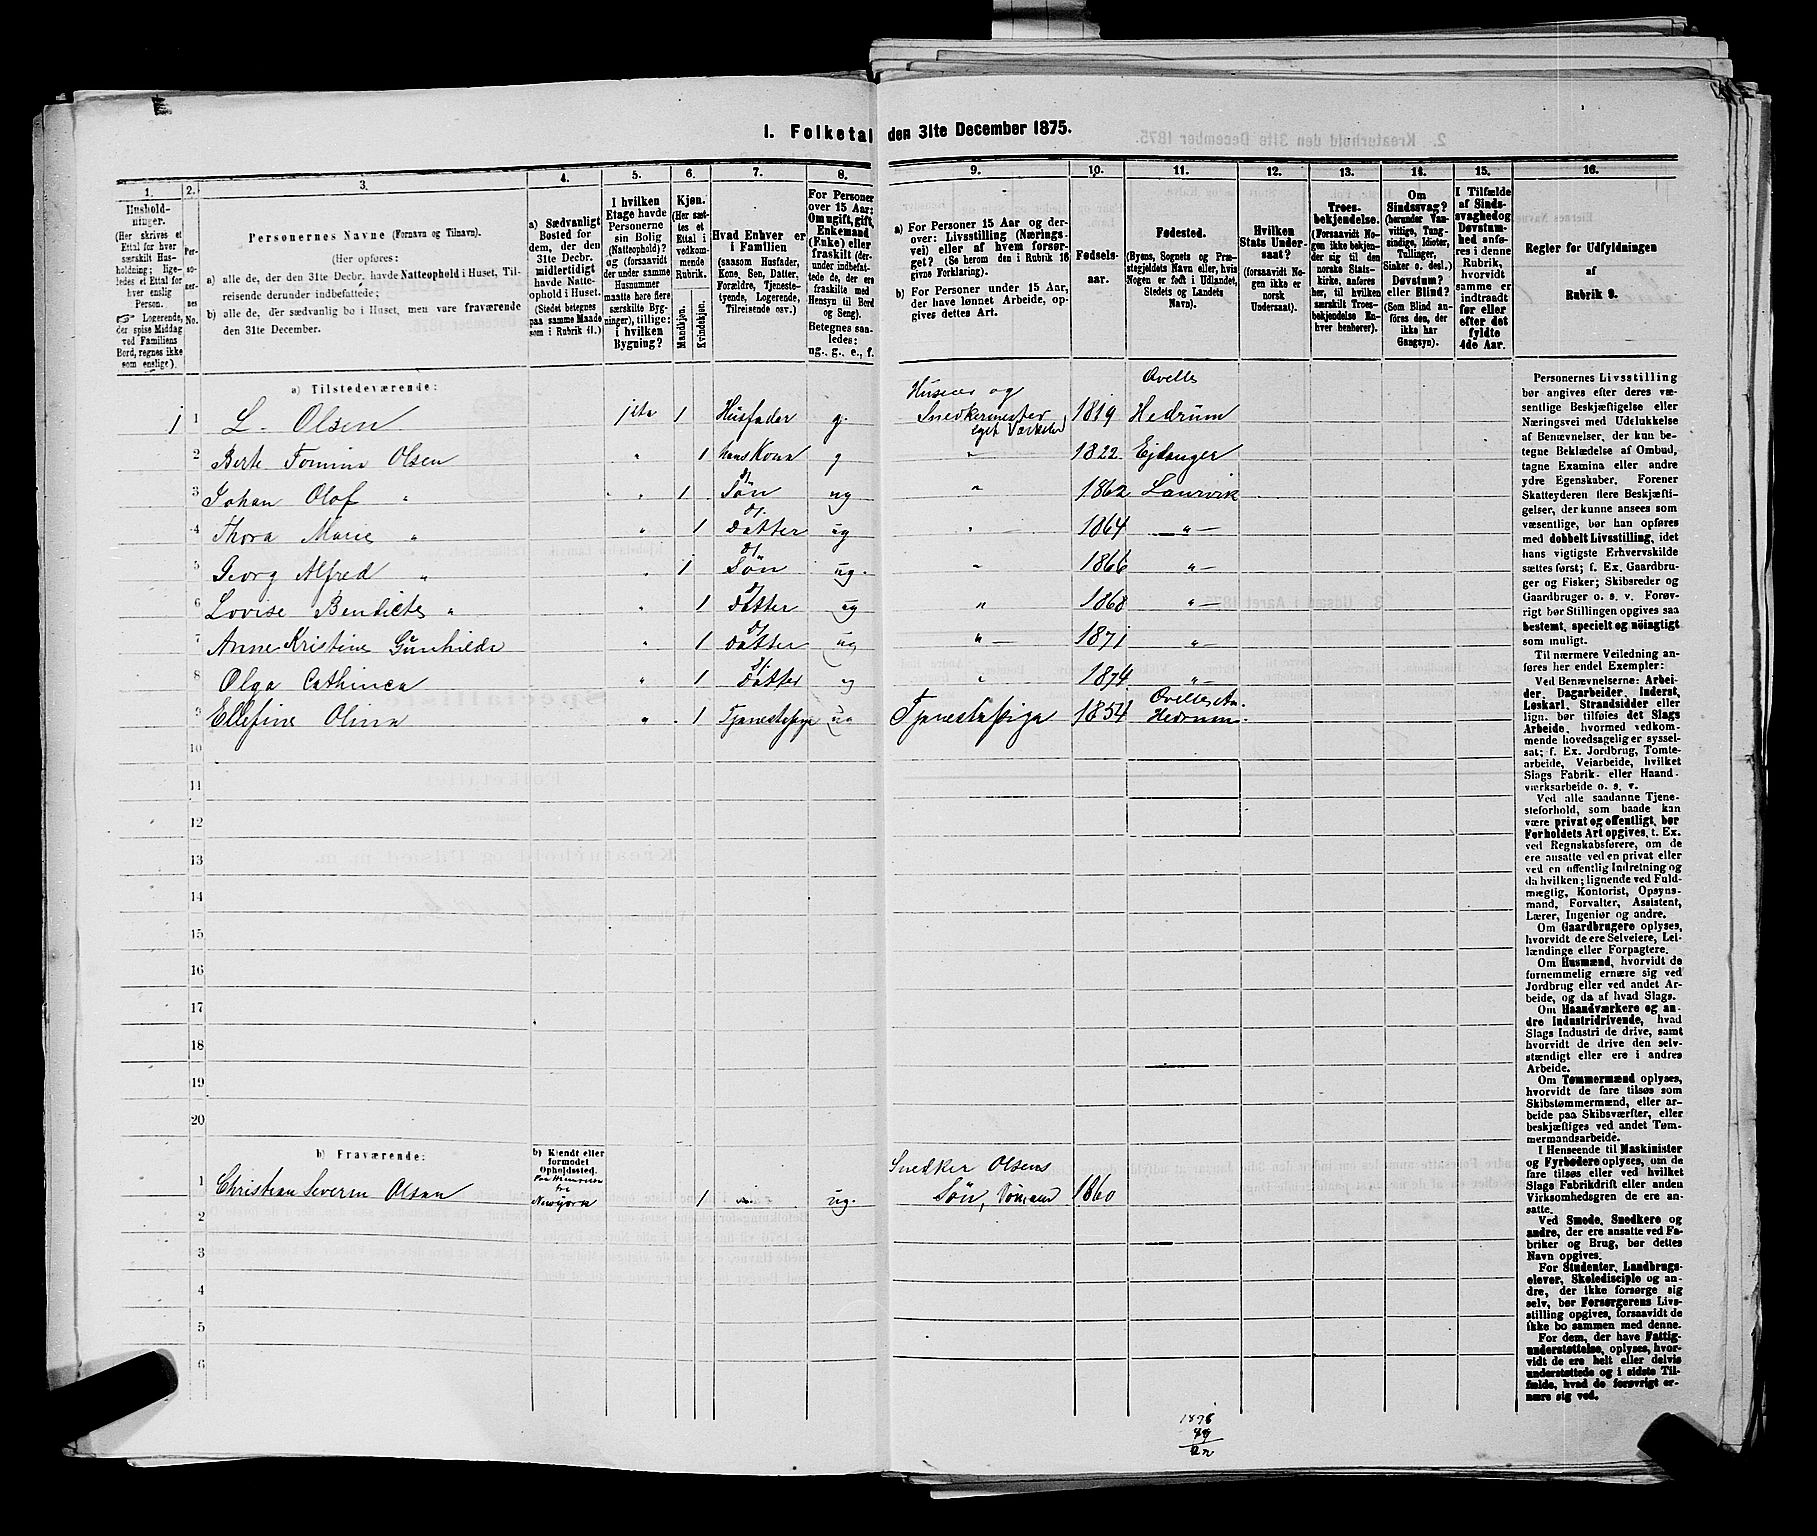 I. Folketal den 31te December 1875.
1.
Husholdninger.
(Her skrives et
Ettal for hver
særskilt Husholdning;
ligeledes et Ettal for
hver enslig
Person.
Logerende,
der spise Middag
ved Familiens
Bord, regnes ikke
som enslige).
2.
Personernes
No.
3.
Personernes Navne (Fornavn og Tilnavn).
(Her opføres:
a) alle de, der den 31te Decbr. havde Natteophold i Huset, Tilreisende derunder indbefattede;
b) alle de, der sædvanlig bo i Huset, men vare fraværende
den 31te December.
4.
a) Sædvanligt
Bosted for
dem, der den
31te Decbr.
midlertidigt
havde Natteophold
i Huset.
(Stedet betegnes
paa samme Maade
som i Rubrik 11.)
5.
I hvilken
Etage havde
Personerne
sin Bolig
(Natteophold)?
og (forsaavidt
der under samme
Husnummer
maatte høre flere
særskilte Bygninger),
tillige:
i hvilken
Bygning?
6.
Kjøn.
(Her sættes
et Ettal i
vedkommende
Rubrik.
Mandkjøn.
Kvindekjøn.
7.
Hvad Enhver er
i Familien
(saasom Husfader,
Kone, Søn, Datter,
Forældre, Tjenestetyende,
Logerende,
Tilreisende osv.)
8.
For Personer
over 15 Aar:
Om ugift, gift,
Enkemand
(Enke) eller
fraskilt (derunder
indbefattede
de, der ere
fraskilte med
Hensyn til Bord
og Seng).
Betegnes saaledes:
ug., g., e., f.
9.
a) For Personer 15 Aar og derover:
Livsstilling (Næringsvei)
eller af hvem forsørget?
(Se herom den i Rubrik 16
givne Forklaring).
b) For Personer under 15 Aar,
der have lønnet Arbeide, opgives
dettes Art.
10.
Fødselsaar.
11.
Fødested.
(Byens, Sognets og Præstegjeldets
Navn eller, hvis
Nogen er født i Udlandet,
Stedets og Landets
Navn).
12.
Hvilken
Stats Undersaat?
(forsaavidt Nogen
ikke er
norsk
Undersaat).
13.
Troesbekjendelse.
(Forsaavidt Nogen
ikke bekjender
sig til den
norske Statskirke,
anføres
her, til hvilken
særskilt Troesbekjendelse
Enhver
henhører).
14.
Om
Sindssvag?
(herunder Vanvittige,
Tungsindige,
Idioter,
Tullinger,
Sinker o. desl.)
Døvstum?
eller Blind?
(Som Blind anføres
den, der
ikke har
Gangsyn).
15.
I Tilfælde
af Sindssvaghed og
Døvstumhed
anføres
i denne
Rubrik,
hvorvidt
samme er
indtraadt
før eller
efter det
fyldte
4de Aar.
16.
Regler for Udfyldningen
af
Rubrik 9.
a) Tilstedeværende:
1 1 L. Olsen 1ste 1 Husfader g. Huseier og Snedkermester eget Værksted 1819 Qvelle Hedrum
2 Berte Tomine Olsen " 1 hans Kone g " 1822 Ejdanger
3 Johan Olof " " 1 d. Søn ug " 1862 Laurvik
4 Thora Marie " " 1 d. Datter ug " 1864 "
5 Georg Alfred " " 1 d. Søn ug. " 1866 "
6 Lovise Bendicte " " 1 d. Datter ug " 1868 "
7 Anne Kristine Gunhilde " 1 d. Datter ug " 1871 "
8 Olga Cathinca " 1 d. Datter ug " 1874 "
9 Ellefine Olina " 1 Tjenestepige ug Tjenestepige 1854 Hedrum
10
11
12
13
14
15
16
17
18
19
20
b) Fraværende:
b) Kjendt eller
formodet
Opholdssted.
1 Christian Severin Olsen Paa Henreisen fra Newyork 1 ug. Snedker Olsens Søn, Sømand 1860
2
3
4
5
6
Personernes Livsstilling
bør angives efter deres væsentlige
Beskjæftigelse eller
Næringsvei med Udelukkelse
af Benævnelser, der kun betegne
Beklædelse af Ombud,
tagne Examina eller andre
ydre Egenskaber. Forener
Skatteyderen flere Beskjæftigelser,
der kunne ansees som
væsentlige, bør han opføres
med dobbelt Livsstilling, idet
hans vigtigste Erhvervskilde
sættes først; f. Ex. Gaardbruger
og Fisker; Skibsreder og
Gaardbruger o. s. v. Forøvrigt
bør Stillingen opgives saa
bestemt, specielt og nöiagtigt
som muligt.
Til nærmere Veiledning anføres
her endel Exempler:
Ved Benævnelserne: Arbeider,
Dagarbeider, Inderst,
Løskarl, Strandsidder eller
lign. bør tilføies det Slags
Arbeide, hvormed vedkommende
hovedsagelig er sysselsat;
f. Ex. Jordbrug, Tomtearbeide,
Veiarbeide, hvilket
Slags Fabrik- eller Haandværksarbeide
o. s. v.
Ved alle saadanne Tjenesteforhold,
som baade kan
være privat og offentligt, bør
Forholdets Art opgives, t. Ex.
ved Regnskabsførere, om de
ere ansatte ved en privat eller
ved en offentlig Indretning og
da hvilken; lignende ved Fuldmægtig,
Kontorist, Opsynsmand,
Forvalter, Assistent,
Lærer, Ingeniør og andre.
Om Gaardbrugere oplyses,
hvorvidt de ere Selveiere, Leilændinge
eller Forpagtere.
Om Husmænd, hvorvidt de
fornemmelig ernære sig ved
Jordbrug eller ved andet Arbeide,
og da af hvad Slags.
Om Haandværkere og andre
Industridrivende, hvad
Slags Industri de drive, samt
hvorvidt de drive den selvstændigt
eller ere i andres
Arbeide.
Om Tømmermænd oplyses,
hvorvidt de fare tilsøs som
Skibstømmermænd, eller arbeide
paa Skibsværfter, eller
beskjæftiges ved andet Tømmermandsarbeide.
I Henseende til Maskinister
og Fyrbødere oplyses, om de
fare tilsøs eller ved hvilket
Slags Fabrikdrift eller anden
Virksomhedsgren de ere ansatte.
Ved Smede, Snedkere og
andre, der ere ansatte ved Fabriker
og Brug, bør dettes
Navn opgives.
For Studenter, Landbrugselever,
Skoledisciple og andre,
der ikke forsørge sig
selv, bør Forsørgerens Livsstilling
opgives, forsaavidt de
ikke bo sammen med denne.
For dem, der have Fattigunderstøttelse,
oplyses, hvorvidt
de ere helt eller delvis
understøttede og i sidste Tilfælde,
hvad de forøvrigt ernære
sig ved.